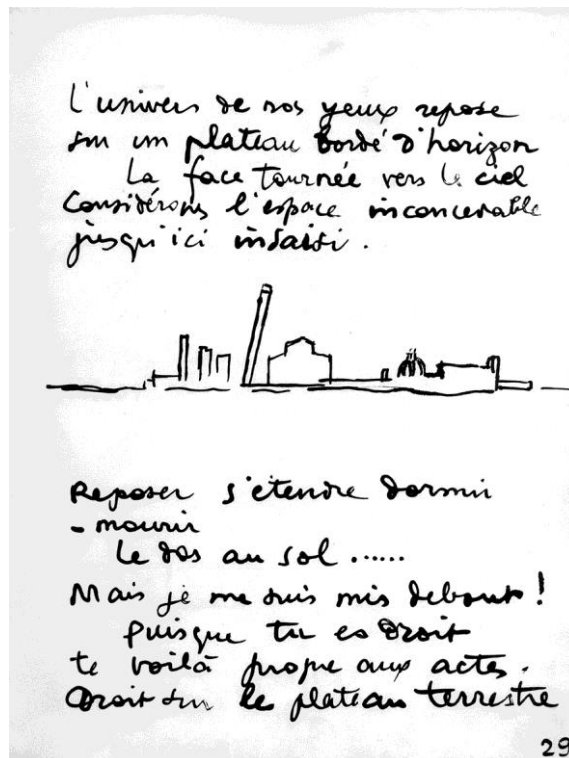 L'univers de nos yeux repose
sur un plateau bordé d'horizon
La face tournée vers le ciel
Considérons l'espace inconcevable
jusqu'ici insaisi.
Reposer s'étendre dormir
- mourir
Le dos au sol ......
Mais je me suis mis debout !
Puisque tu es droit
te voilà propre aux actes.
Droit sur le plateau terrestre
29